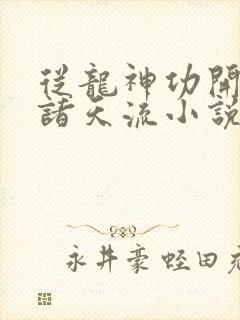 從龍神功開
諸天流小說
永井豪 蛭田充